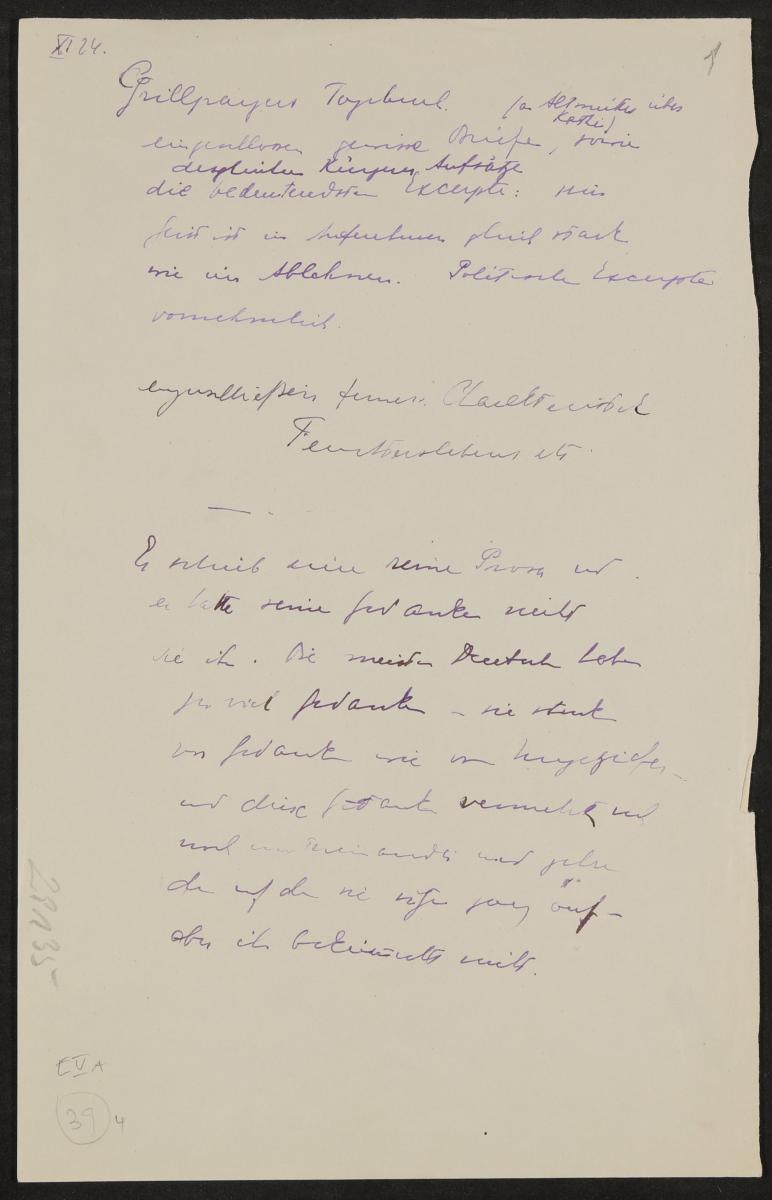 XI 24.
1
Grillparzers Tagebuch. (an Altmütter über
Kathi)
eingeschlossen gewisse Briefe, sowie
desgleichen kürzere Aufsätze
die bedeutendsten Excerpte: sein
Geist ist im Aufnehmen gleich stark
wie im Ablehnen. Politische Excerpte
vornehmlich.
einzuschließen ferner: Charakteristik
Feuchterslebens etc.
Er schrieb eine reine Prosa und
er hatte seine Gedanken nicht
sie ihn. Die meisten Deutschen haben
zu viel Gedanken – sie
von Gedanken wie von Ungeziefer –
und diese Gedanken vermehren sich
noch untereinander und
der auf dem sie sitzen ganz auf –
aber ihn bekümmerts nicht.
291135
E V A
39 4